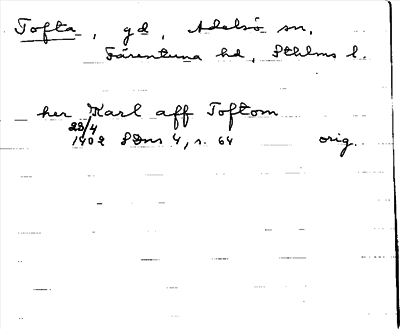 Tofta, gd, Adelsö sn,
Färentuna hd, Sthlms l.
her Karl aff Toftom
23/4
1402 SDns 4, s. 64 orig.